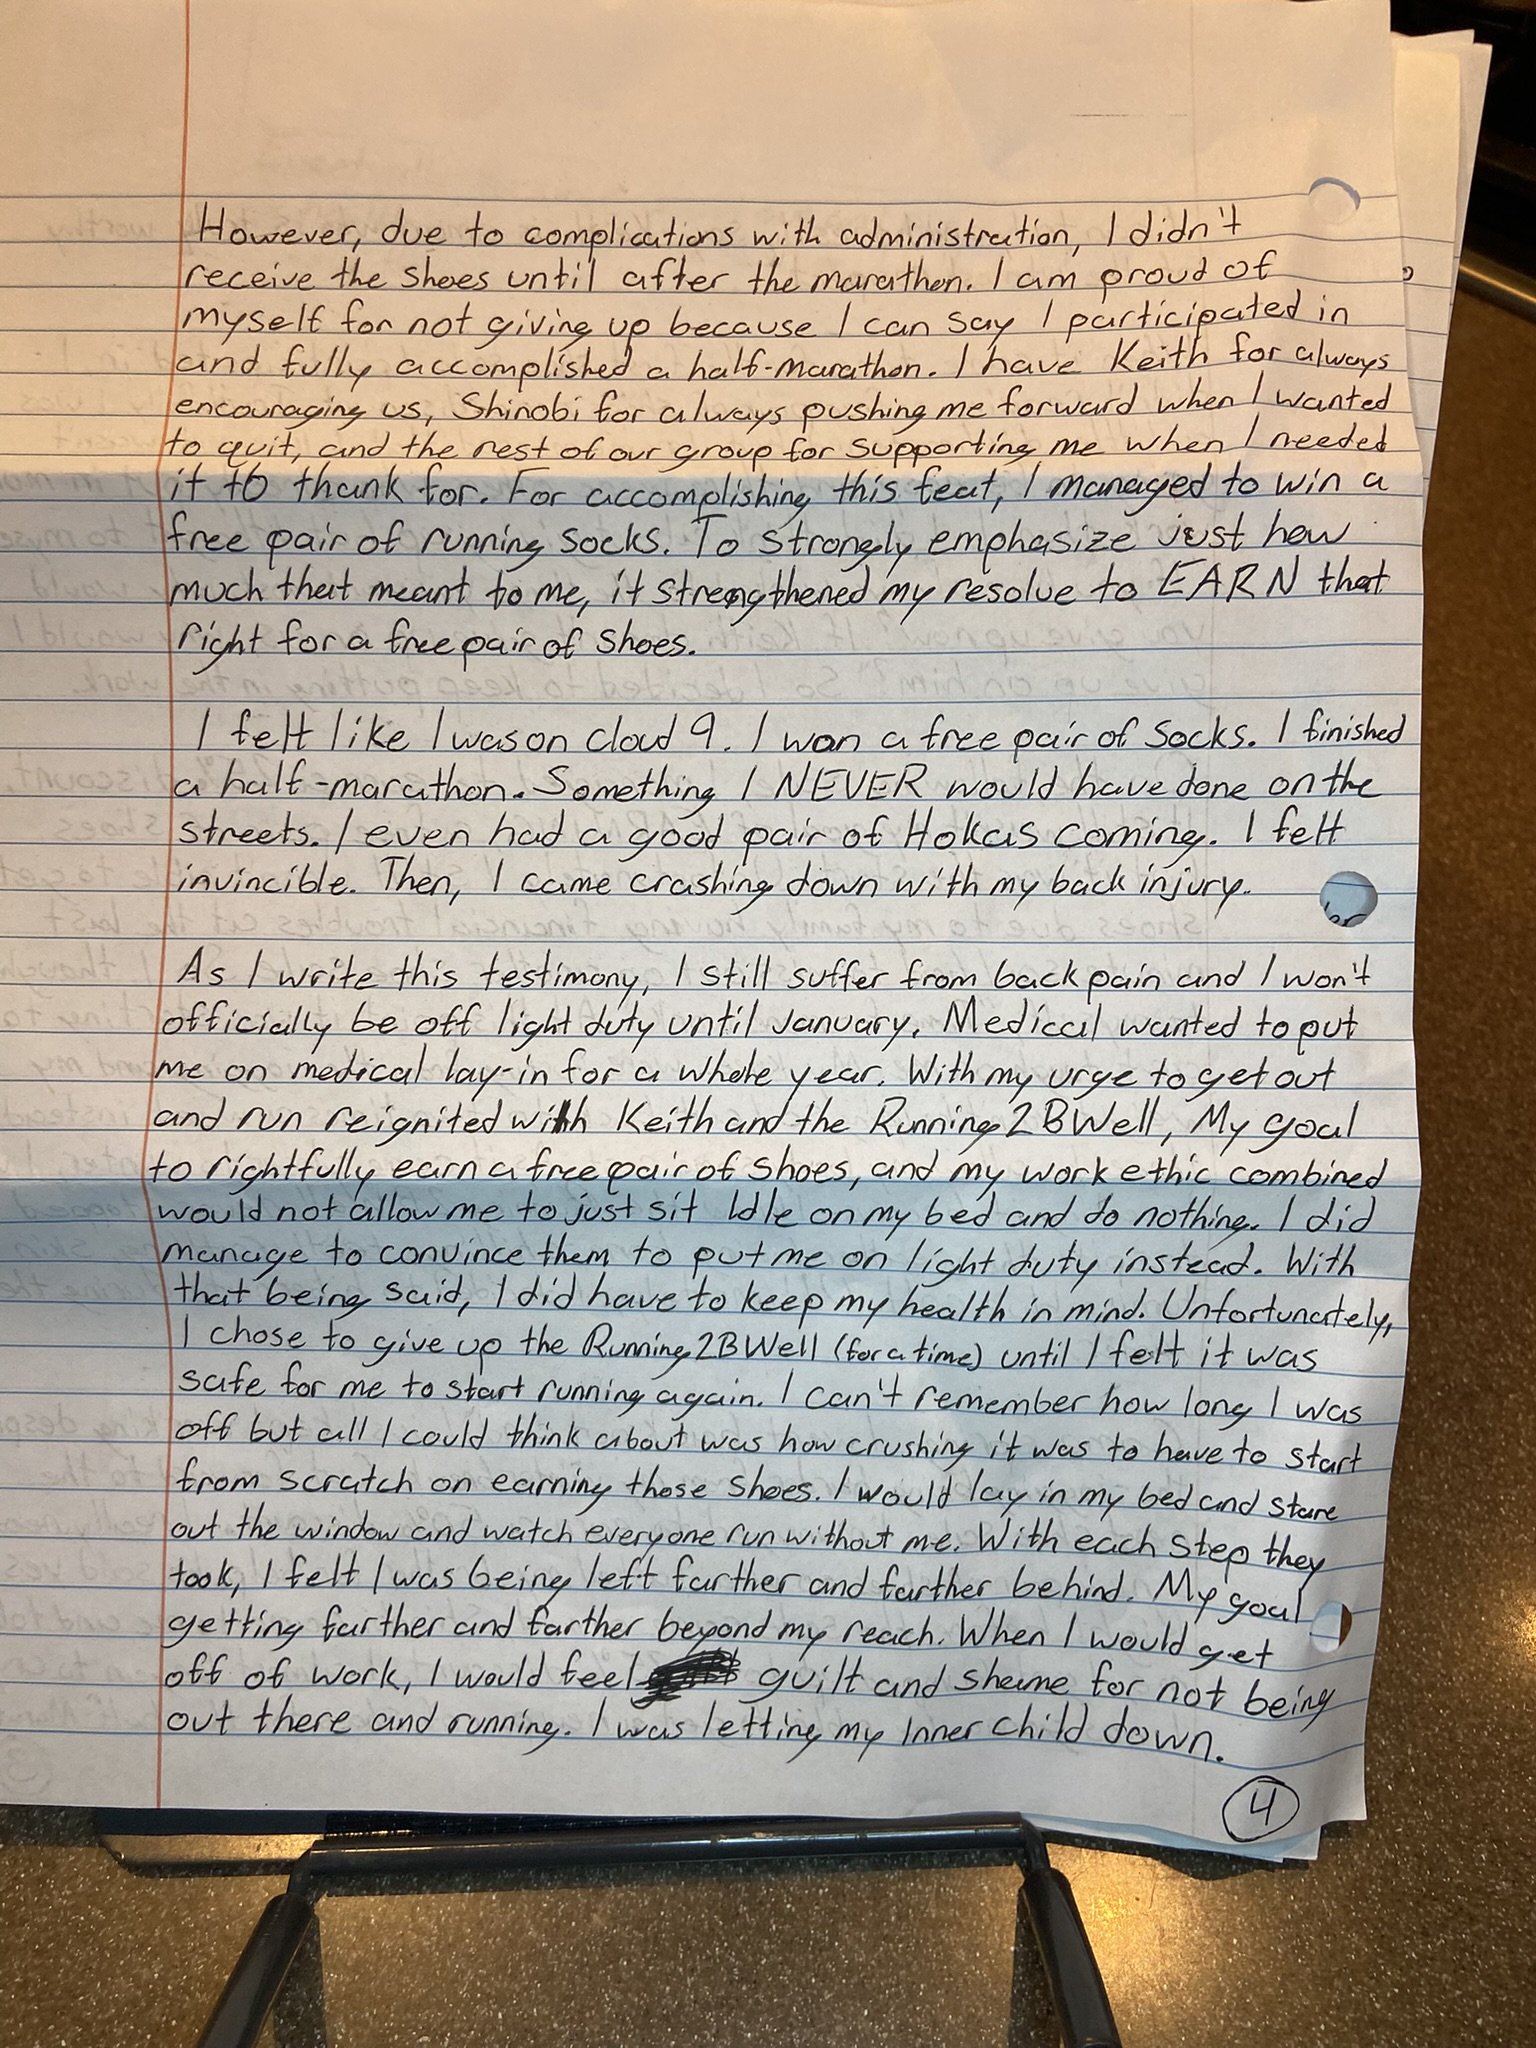 However, due to complications with administration, I didn't
receive the shoes until after the marathon. I am proud of
myself for not giving up because I can say I participated in
and fully accomplished a half-marathon. I have Keith for always
encouraging us, Shinobi for always pushing me forward when I wanted
to quit, and the rest of our group for supporting me when I needed
it to thank for. For accomplishing this feat, I managed to win a
free pair of running socks. To strongly emphasize just how
much that meant to me, it strengthened my resolve to EARN that
right for a free pair of shoes.
I felt like I was on cloud 9. I won a free pair of socks. I finished
a half-marathon. Something I NEVER would have done on the
streets. I even had a good pair of Hokas coming. I felt
invincible. Then, I came crashing down with my back injury.
As I write this testimony, I still suffer from back pain and I won't
officially be off light duty until January. Medical wanted to put
me on medical lay-in for a whole year. With my urge to get out
and run reignited with Keith and the Running2BWell, My goal
to rightfully earn a free pair of shoes, and my work ethic combined
would not allow me to just sit Idle on my bed and do nothing. I did
manage to convince them to put me on light duty instead. With
that being said, I did have to keep my health in mind. Unfortunately,
I chose to give up the Running2BWell (for a time) until I felt it was
safe for me to start running again. I can't remember how long I was
off but all I could think about was how crushing it was to have to start
from scratch on earning those shoes. I would lay in my bed and stare
out the window and watch everyone run without me. With each step they
took, I felt I was being left farther and farther behind. My goal
getting further and farther beyond my reach. When I would get
off of work, I would feel guilt and shame for not being
out there and running. I was letting my Inner child down.
4